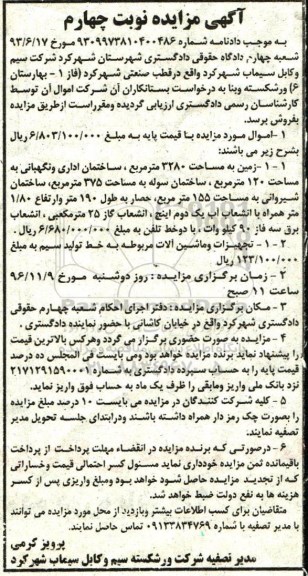 آگهی مزایده نوبت چهارم
به موجب دادنامه شماره ۹۳۰۹۹۷۳۸۱۰۴۰۰۴۸۶ مورخ ۹۳/۶/۱۷
شعبه چهارم دادگاه حقوقی دادگستری شهرستان شهرکرد شرکت سیم
وکابل سیماب شهرکرد واقع درقطب صنعتی شهرکرد (فاز ۱ - بهارستان
۶) ورشکسته وبنا به درخواست بستانکاران آن شرکت اموال آن توسط
کارشناسان رسمی دادگستری ارزیابی گردیده ومقرراست ازطریق مزایده
بفروش برسد.
۱ -اموال مورد مزایده با قیمت پایه به مبلغ ۶/۸۰۳/۱۰۰/۰۰۰ ریال
بشرح زیر می باشند:
۱ - ۱ -زمین به مساحت ۳۲۸۰ مترمربع ، ساختمان اداری ونگهبانی به
مساحت ۱۲۰ مترمربع ، ساختمان سوله به مساحت ۳۷۵ مترمربع، ساختمان
شیروانی به مساحت ۱۵۵ متر مربع، حصار به طول ۱۹۰ متر وارتفاع ۱/۸۰
متر همراه با انشعاب آب یک دوم اینچ ، انشعاب گاز ۲۵ مترمکعبی ، انشعاب
برق سه فاز ۹۰ کیلو وات ، با دوخط تلفن به مبلغ ۶/۶۸۰/۰۰۰/۰۰۰ ریال .
۲ - ۱ - تجهیزات وماشین آلات مربوطه به خط تولید سیم به مبلغ
۱۲۳/۱۰۰/۰۰۰ ریال
۲ - زمان برگزاری مزایده : روز دوشنبه مورخ ۹۶/۱۱/۹
ساعت ۱۱ صبح
۳ - مکان برگزاری مزایده : دفتر اجرای احکام شعبه چهارم حقوقی
دادگستری شهرکرد واقع در خیابان کاشانی با حضور نماینده دادگستری .
۴ - مزایده به صورت حضوری برگزار می گردد وهرکس بالاترین قیمت
را پیشنهاد نماید برنده مزایده خواهد بود ومی بایست فی المجلس ده درصد
قیمت پایه را به حساب سپرده دادگستری به شماره ۲۱۷۱۲۹۱۵۹۰۰۰۱
نزد بانک ملی واریز ومابقی را ظرف یک ماه به حساب فوق واریز نماید.
۵ - کلیه شرکت کنندگان در مزایده می بایست ۱۰ درصد مبلغ مزایده
را بصورت چک رمز دار همراه داشته باشند ودرابتدای جلسه تحویل مدیر
تصفیه نمایند.
۶ - درصورتی که برنده مزایده در انقضاء مهلت پرداخت از پرداخت
باقیمانده ثمن مزایده خودداری نماید مسئول کسر احتمالی قیمت وخساراتی
که از تجدید مزایده حاصل شود خواهد بود ومبلغ واریزی پس از کسر
هزینه ها به نفع دولت ضبط خواهد شد.
متقاضیان برای کسب اطلاعات بیشتر وبازدید از محل مورد مزایده می توانند
با مدیر تصفیه با شماره ۰۹۱۳۳۸۳۴۷۶۹ تماس حاصل نمایند.
پرویز کرمی
مدیر تصفیه شرکت ورشکسته سیم وکابل سیماب شهرکرد